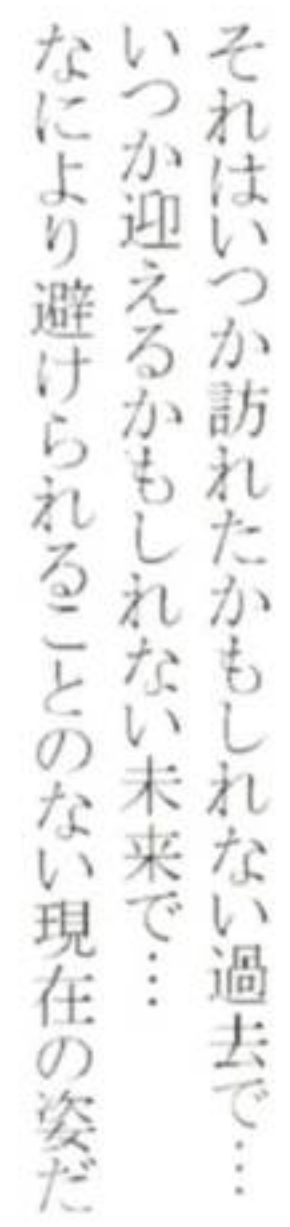 それはいつか訪れたかもしれない過去で…
いつか迎えるかもしれない未来で…
なにより避けられることのない現在の姿だ